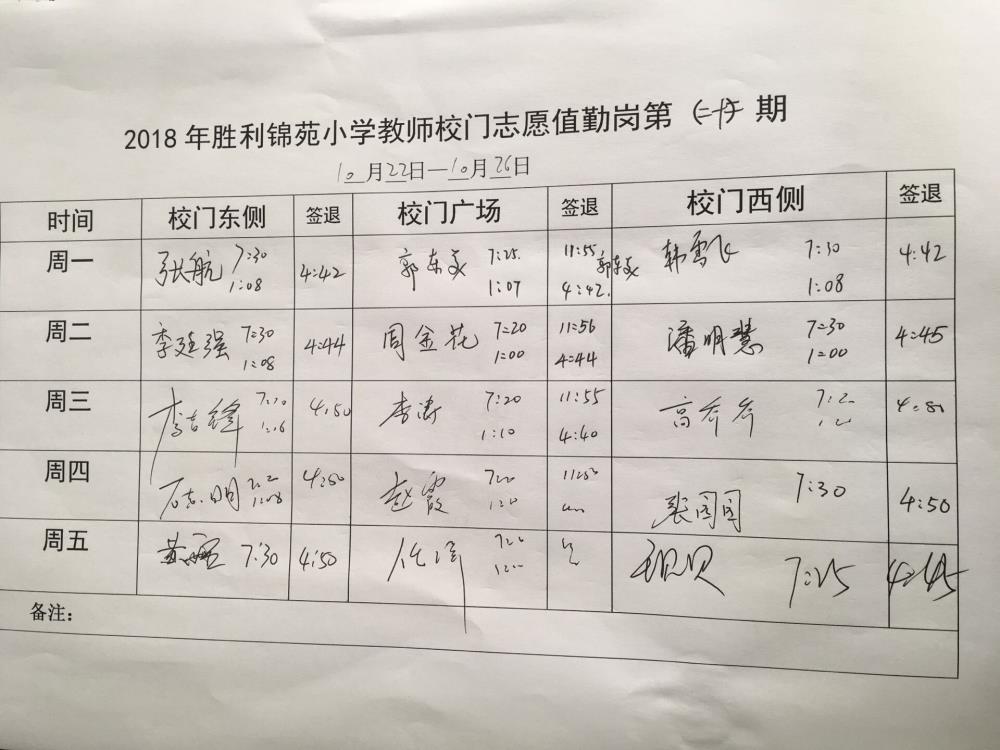 2018年胜利锦苑小学教师校门志愿值勤岗第(二十)期
10月22日—10月26日
时间 校门东侧 签退 校门广场 签退 校门西侧 签退
周一 张航 7:30 1:08 4:42 郭东美 7:25 1:07 11:55 4:42 郭东美 韩雪飞 7:30 1:08 4:42
周二 李廷强 7:30 1:08 4:44 周金花 7:20 1:00 11:56 4:44 潘明慧 7:30 1:00 4:45
周三 李吉锋 4:50 李涛 7:20 1:10 11:55 4:40 高乔乔 4:50
周四 石志明 4:50 赵霞 裴团团 7:30 4:50
周五 7:30 4:50 任洋 7:25 4:45
备注: